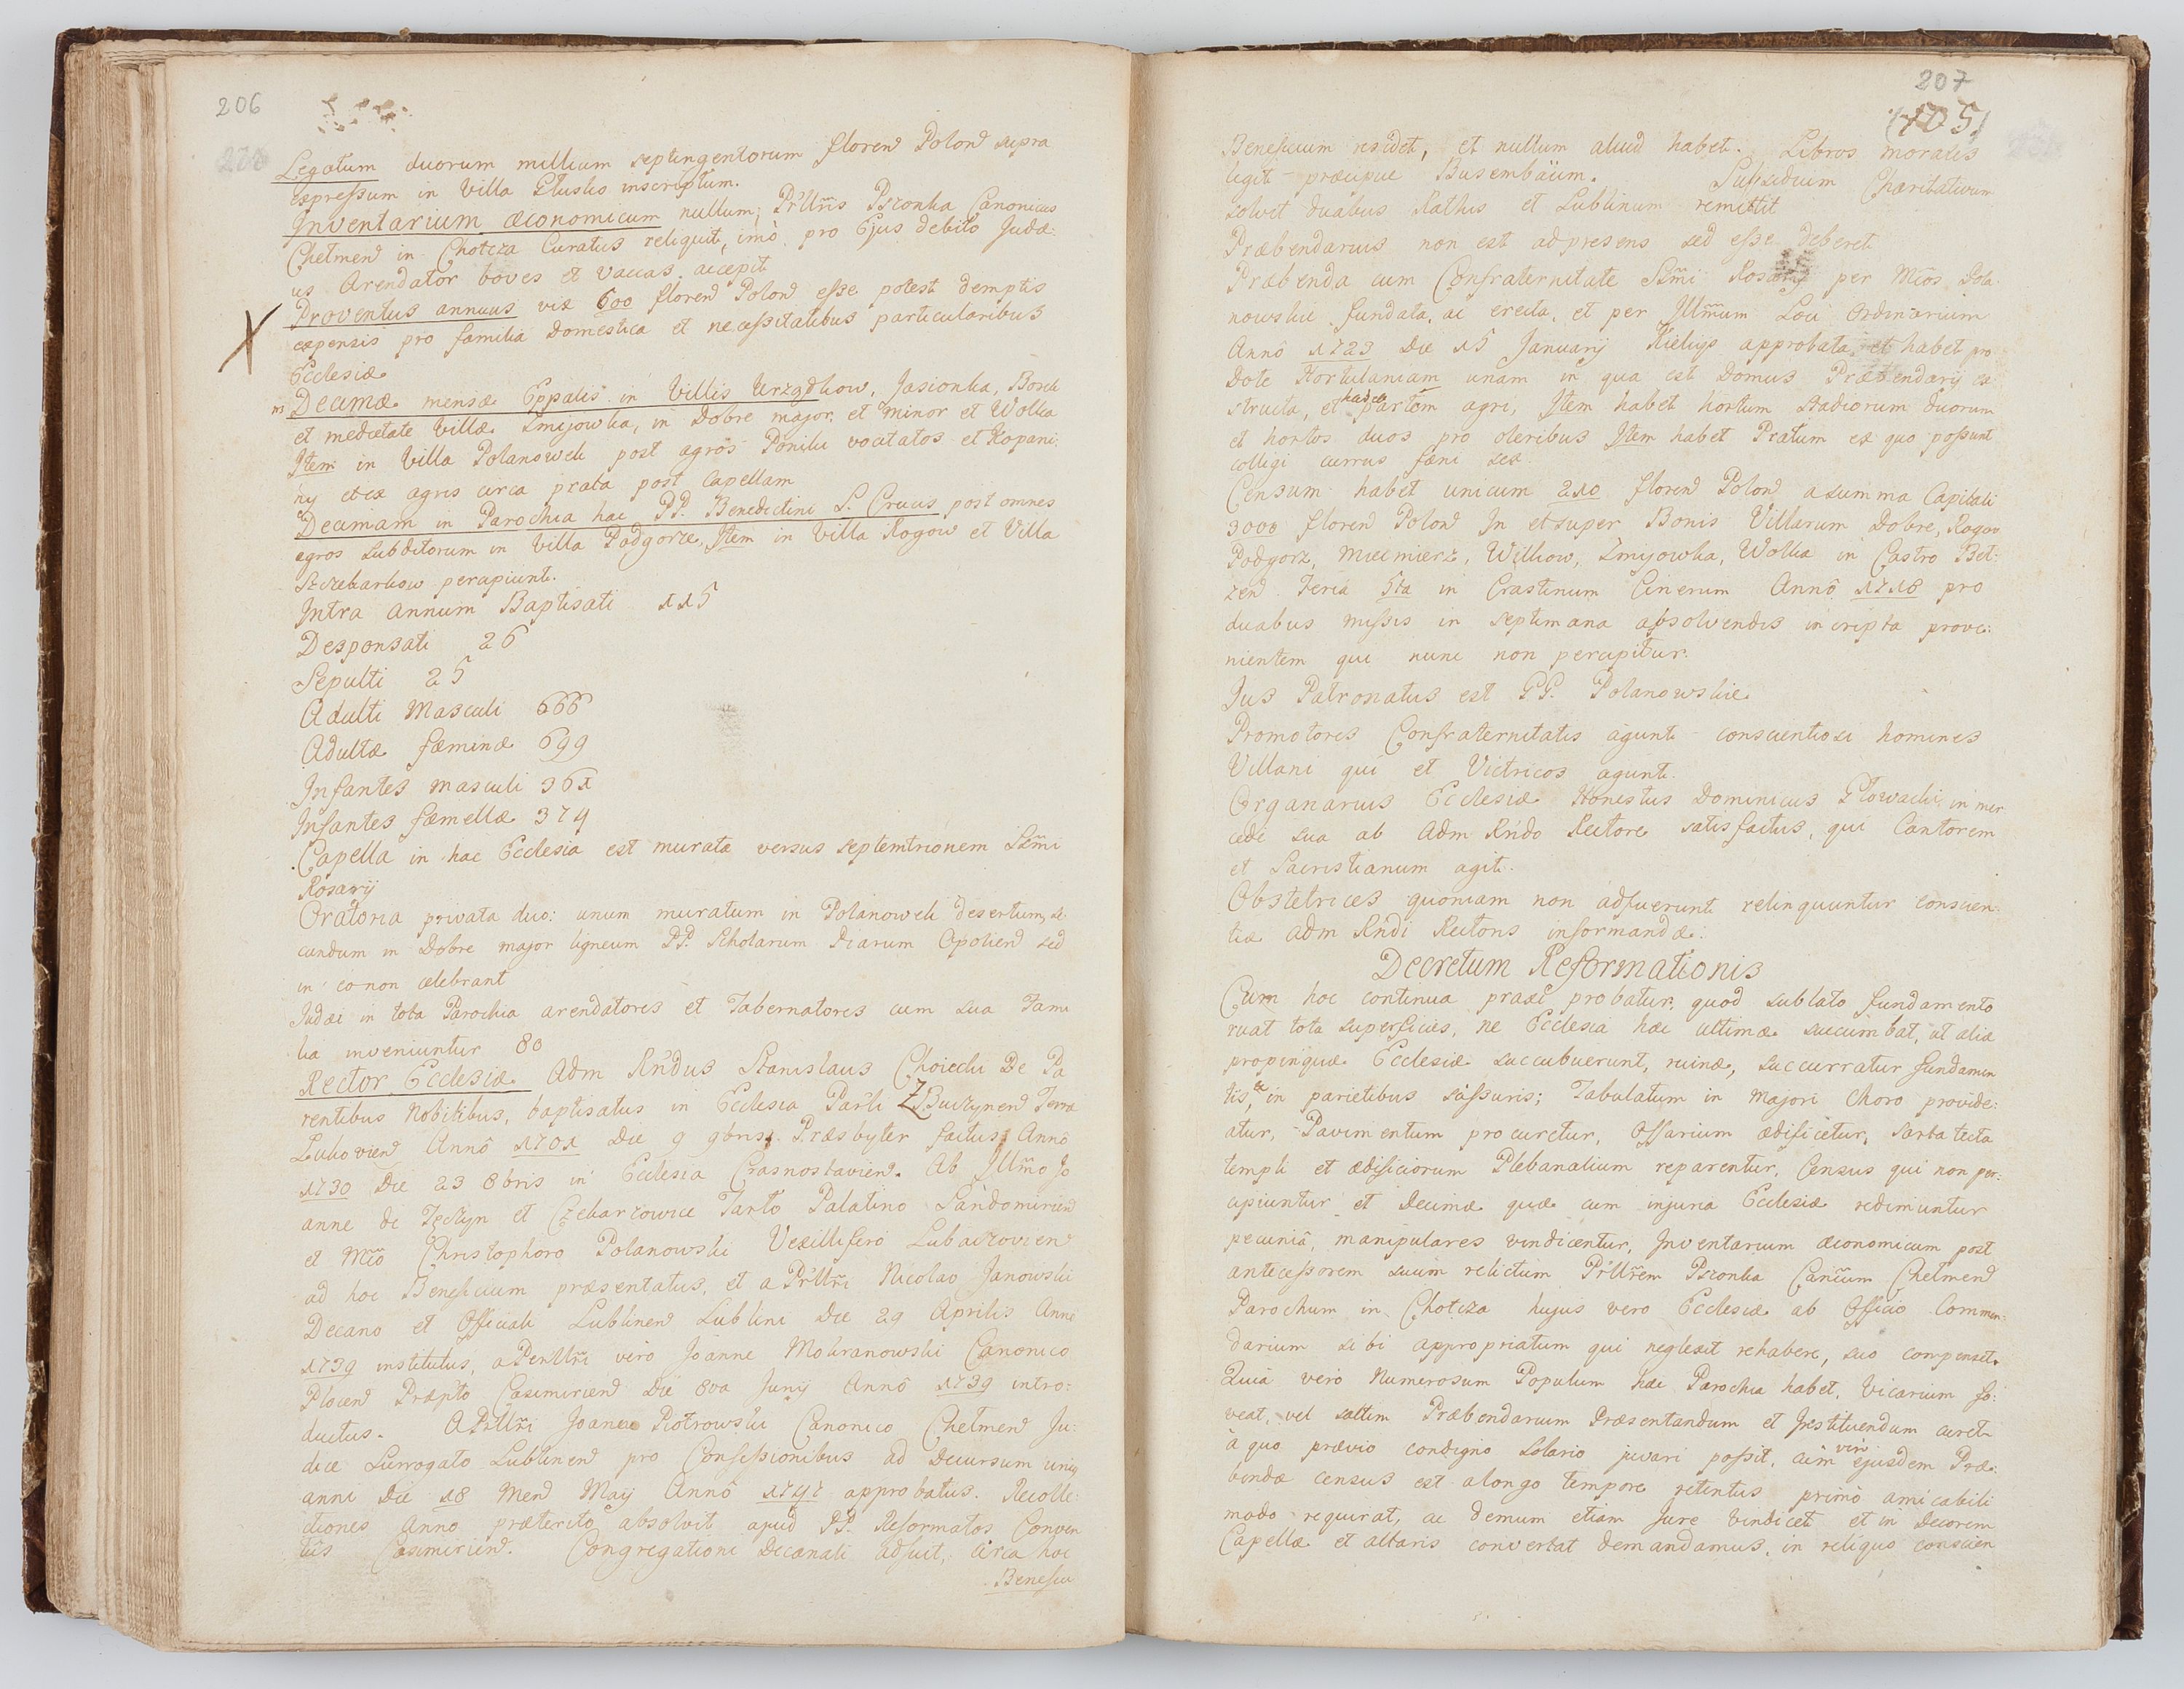 206
Legatum duorum millium septingentorum floren Polon supra
expressum in Villa Glusko inscriptum.
Inventarium æconomicum nullum; Prllris Pszonka Canonicus
Chelmen in Chotcza Curatus reliquit, imò pro Ejus debito Judæ:
us Arendator boves et vaccas accepit
Proventus annuus vix 600 floren Polon esse potest demptis
expensis pro familia Domestica et necessitatibus particularibus
Ecclesiæ
Decimæ mensæ Eppalis in Villis Urządkow, Jasionka, Boseli
et medietate Villæ Zmijowka, in Dobre major, et minor et Wolka
Item in Villa Polanowek post agros Poniki vocitatos et Kopani:
ny et ex agris circa prata post Capellam
Decimam in Parochia hac PP. Benedictini S. Crucis post omnes
agros subditorum in Villa Podgorze, Item in Villa Rogow et Villa
Szczekarkow percipiunt.
Intra annum Baptisati 115
Desponsati 26
Sepulti 25
Adulti Masculi 666
Adultæ fæminæ 699
Infantes masculi 361
Infantes fæmellæ 374
Capella in hac Ecclesia est murata versus septemtrionem SSmi
Rosarij
Oratoria privata duo: unum muratum in Polanowek desertum, se:
cundum in Dobre major ligneum PP. Scholarum Piarum Opolien sed
in eo non celebrant
Judæi in tota Parochia arendatores et Tabernatores cum sua Fami
lia inveniuntur 80
Rector Ecclesiæ Adm Rndus Stanislaus Choiecki De Pa
rentibus Nobilibus, baptisatus in Ecclesia Parli Zbuczynen Terræ
Lukovien Annô 1701 Die 9 9bris. Præsbyter factus Annô
1730 Die 23 8bris in Ecclesia Crasnostavien. Ab Illmo Jo
anne de Teczyn et Czekarzowice Tarło Palatino Sandomirien
et Mco Christophoro Polanowski Vexillifero Lubaczovien
ad hoc Beneficium præsentatus, et a Prllri Nicolao Janowski
Decano et Officiali Lublinen Lublini Die 29 Aprilis Annô
1739 institutus, a Penllri vero Joanne Mokranowski Canonico
Plocen Præpto Casimirien Die 8va Junij Annô 1739 intro:
ductus. A Prllri Joanne Piotrowski Canonico Chelmen Ju:
dice Surrogato Lublinen pro Confessionibus ad Decursum unig
anni Die 18 Men Maij Annô 1747 approbatus. Recolle:
ctiones Anno præterito absolvit apud PP. Reformatos Conven
tûs Casimirien. Congregationi Decanali adfuit, circa hoc
Benefici
207
(105)
Beneficium residet, et nullum aliud habet. Libros morales
legit præcipue Busembäum. Subsidium Charitativum
solvit duabus Rathis et Lublinum remittit
Præbendarius non est ad presens sed esse deberet
Præbenda cum Confraternitate SSmi Rosarij per Mcos Pola:
nowskie fundata, ac erecta, et per Illmum Loci Ordinarium
Annô 1723 Die 15 Januarij Kielijs approbata, et habet pro
Dote Hortulaniam unam in qua est Domus Præbendarij ex:
structa, et habet partem agri, Item habet hortum stadiorum duorum
et hortos duos pro oleribus Item habet Pratum ex quo possunt
colligi currus fæni sex.
Censum habet unicum 210 floren Polon a summa Capitali
3000 floren Polon In et super Bonis Villarum Dobre, Rogow
Podgorz, Miecmierz, Wilkow, Zmijowka, Wolka in Castro Bel:
zen Feria 5ta in Crastinum Cinerum Annô 1718 pro
duabus missis in septimana absolvendis inscripta prove:
nientem qui nunc non percipitur.
Jus Patronatus est GG. Polanowskie
Promotores Confraternitatis agunt conscientiosi homines
Villani qui et Victricos agunt.
Organarius Ecclesiæ Honestus Dominicus Głowacki, in mer
cede sua ab Adm Rndo Rectore satisfactus, qui Cantorem
et Sacristianum agit.
Obstetrices quoniam non adfuerunt relinquuntur conscien:
tiæ Adm Rndi Rectoris informandæ.
Decretum Reformationis
Cum hoc continua praxi probatur, quod sublato fundamento
ruat tota superficies, ne Ecclesia hæc ultimæ succumbat, ut alia
propinquæ Ecclesiæ succubuerunt, ruinæ, succurratur fundamen
tis, & in parietibus sissuris; Tabulatum in majori Choro provide:
atur, Pavimentum procuretur, Ossarium ædificetur, Sarta tecta
templi et ædificiorum Plebanalium reparentur, Census qui non per:
cipiuntur et Decimæ quæ cum injuria Ecclesiæ redimuntur
pecuniâ, manipulares vindicentur, Inventarium æconomicum post
antecessorem suum relictum Prllrem Pszonka Canûm Chelmen
Parochum in Chotcza hujus vero Ecclesiæ ab Officio Commen:
darium sibi appropriatum qui neglexit rehabere, suo compenset.
Quia verò Numerosum Populum hæc Parochia habet, Vicarium fo:
veat, vel saltim Præbendarium Præsentandum et Instituendum curet
à quo prævio condigno Solario juvari possit, cum verò ejusdem Præ:
bendæ census est a longo tempore retentus primò amicabili
modo requirat, ac demum etiam Jure Vindicet et in Decorem
Capellæ et altaris convertat demandamus, in reliquo conscien